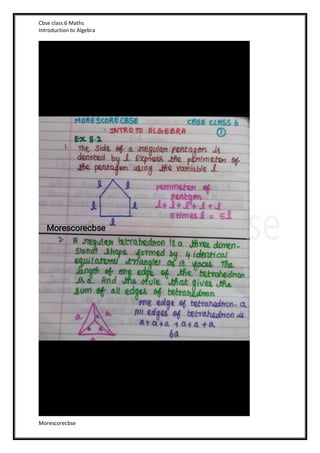 Cbse class 6 Maths
Introduction to Algebra
MORESCORECBSE CBSE CLASS 6
INTRO TO ALGEBRA 1
Ex 8.2
1. The side of a regular pentagon is
denoted by l. Express the perimeter of
the pentagon using the variable l.
l l perimeter of
pentgon
l l l+l+l+l+l
5 times l = 5l
l
Morescorecbse
2- A regular tetrahedron is a three dimen-
sional shape formed by 4 identical
equilateral triangles as it faces. The
length of one edge of the tetrahedron
is a. And the rule that gives the
sum of all edges of tetrahedron
one edge of tetrahedron- a
All edges of tetrahedron is
a a a+a+a+a+a+a
a a 6a
a
Morescorecbse